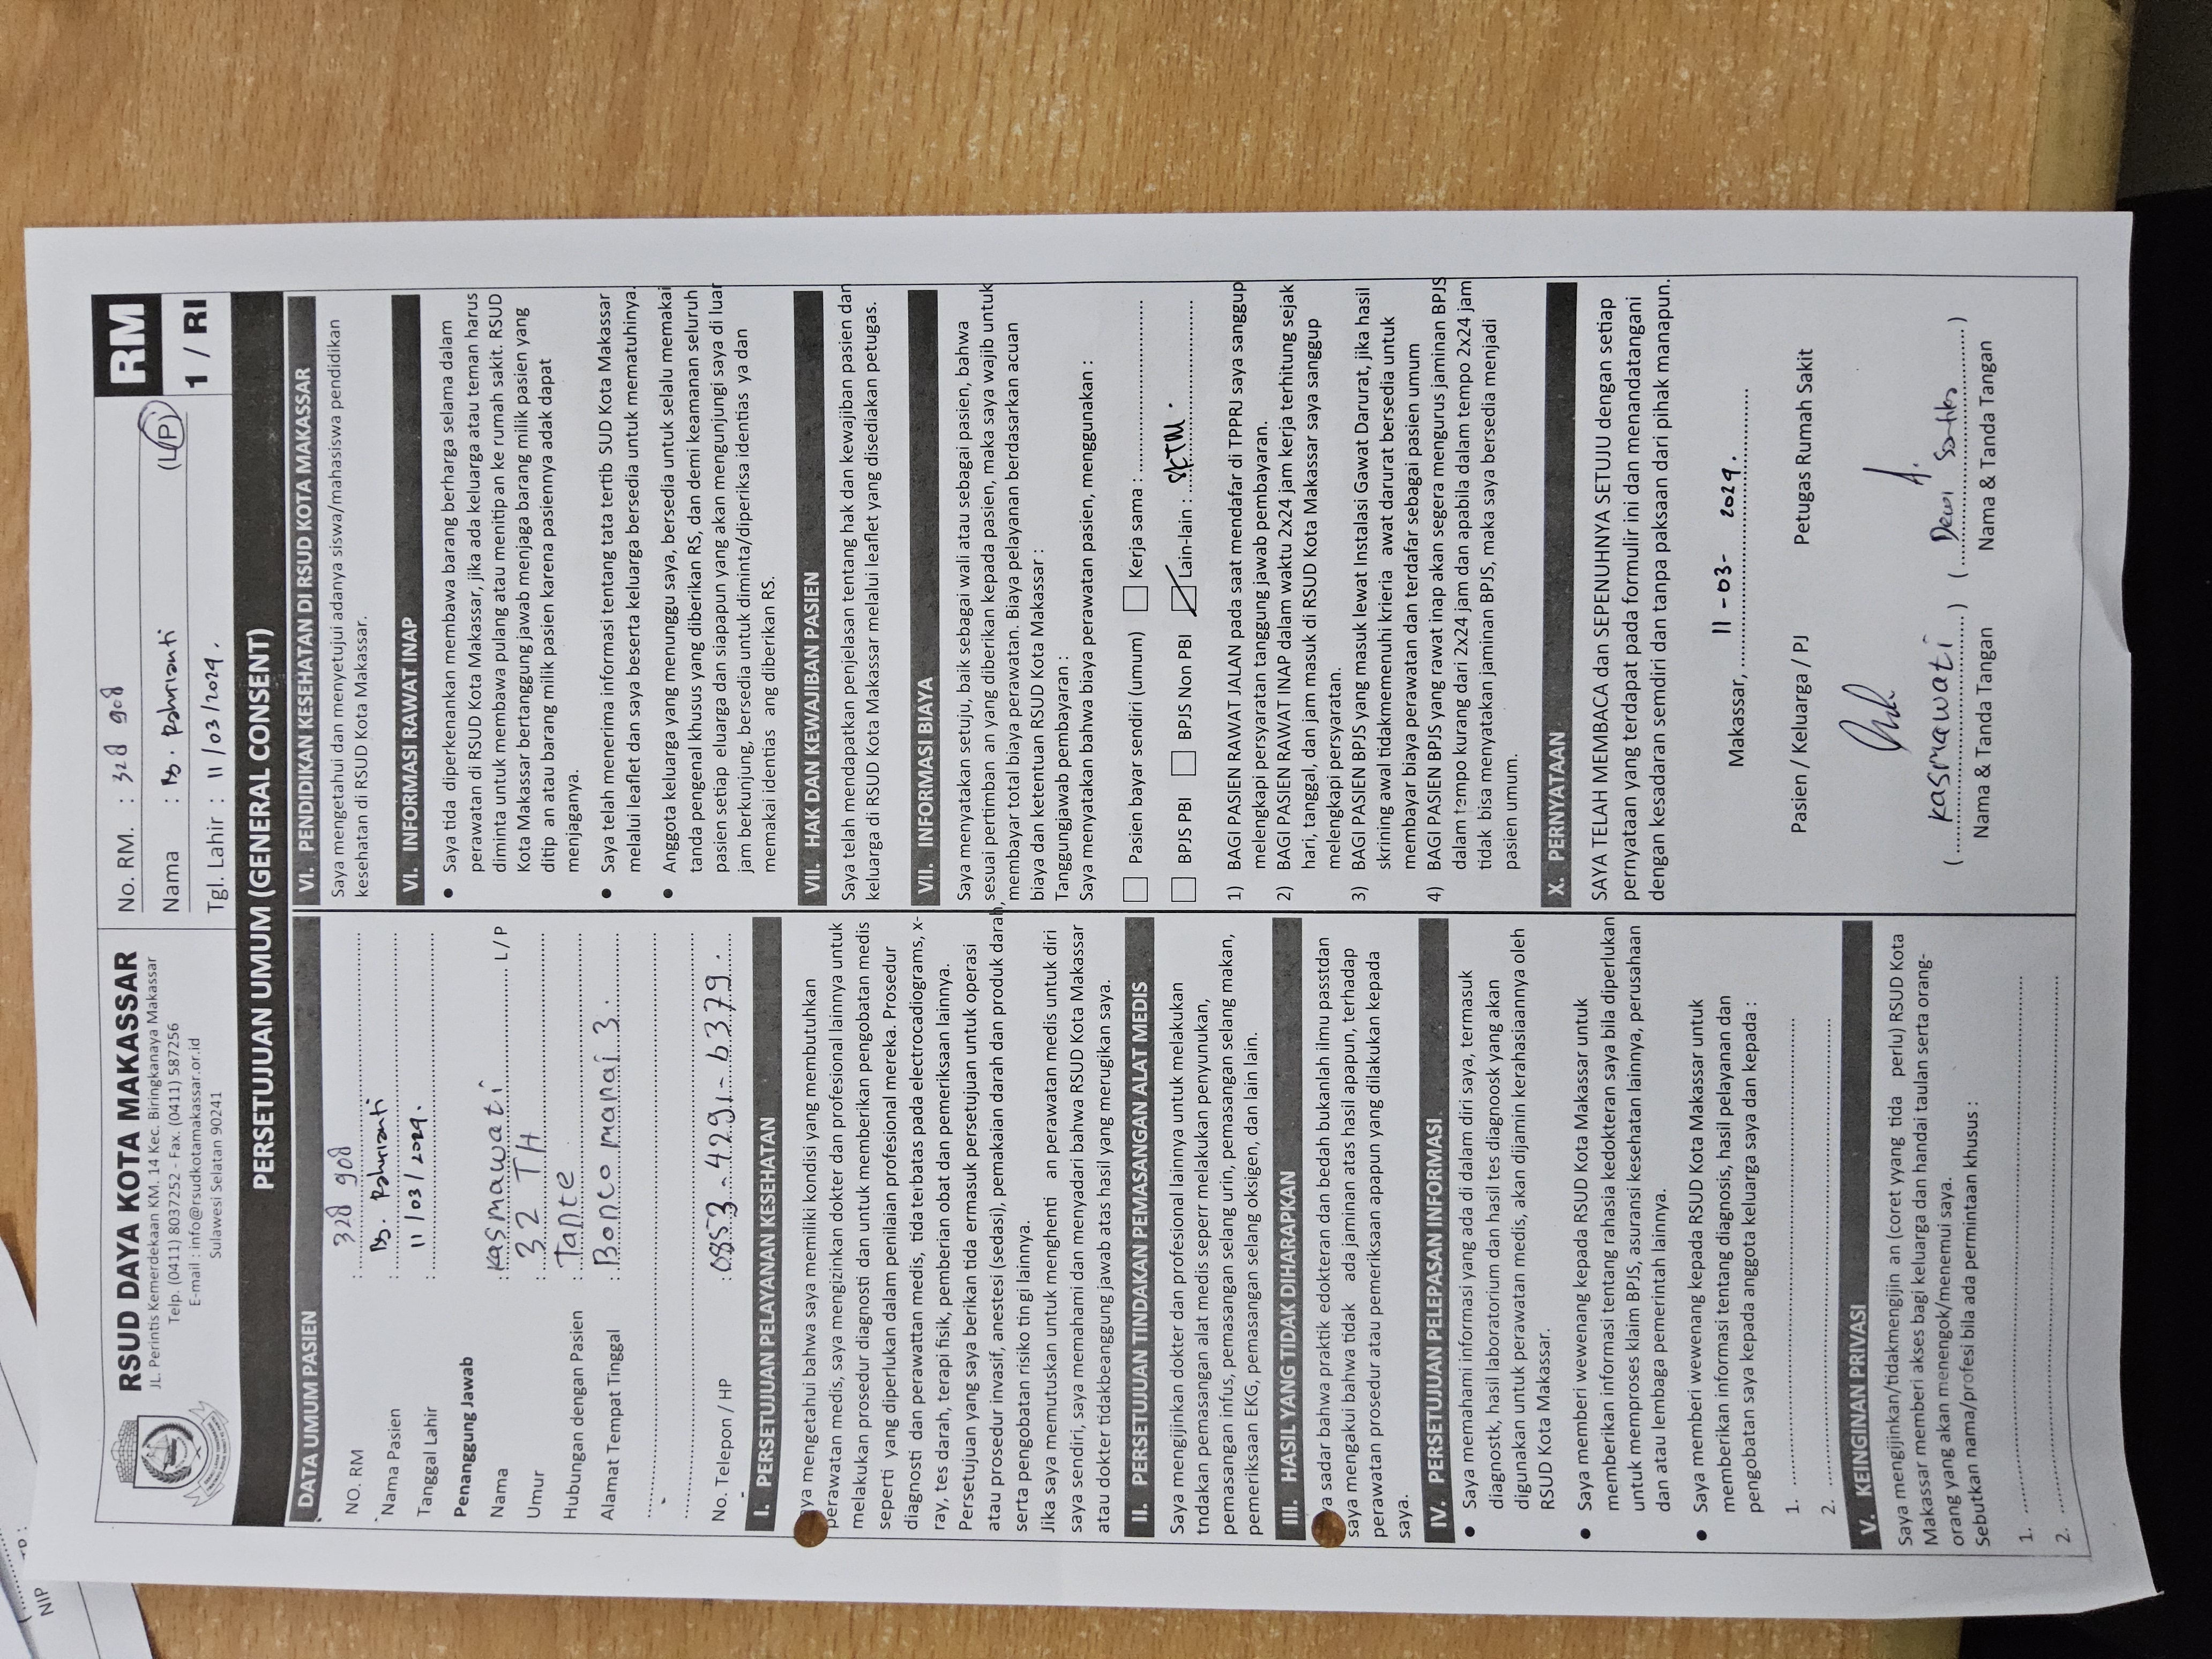 NIP
TD :
RSUD DAYA KOTA MAKASSAR
JL. Perintis Kemerdekaan KM. 14 Kec. Biringkanaya Makassar
Telp. (0411) 8037252 - Fax. (0411) 587256
E-mail : info@rsudkotamakassar.or.id
Sulawesi Selatan 90241
No. RM. : 328 908
Nama : By. Rahrianti (L/P)
Tgl. Lahir : 11/03/2024.
RM
1 / RI
PERSETUJUAN UMUM (GENERAL CONSENT)
DATA UMUM PASIEN
NO. RM : 328 908
Nama Pasien : By. Rahrianti
Tanggal Lahir : 11/03/2024.
Penanggung Jawab
Nama : Kasmawati L / P
Umur : 32 TH
Hubungan dengan Pasien : Tante
Alamat Tempat Tinggal : Bonto manai 3.
No. Telepon / HP : 0853-4291-6379.
I. PERSETUJUAN PELAYANAN KESEHATAN
ya mengetahui bahwa saya memiliki kondisi yang membutuhkan
perawatan medis, saya mengizinkan dokter dan profesional lainnya untuk
melakukan prosedur diagnosti dan untuk memberikan pengobatan medis
seperti yang diperlukan dalam penilaian profesional mereka. Prosedur
diagnosti dan perawattan medis, tida terbatas pada electrocadiograms, x-
ray, tes darah, terapi fisik, pemberian obat dan pemeriksaan lainnya.
Persetujuan yang saya berikan tida ermasuk persetujuan untuk operasi
atau prosedur invasif, anestesi (sedasi), pemakaian darah dan produk darah,
serta pengobatan risiko tin gi lainnya.
Jika saya memutuskan untuk menghenti an perawatan medis untuk diri
saya sendiri, saya memahami dan menyadari bahwa RSUD Kota Makassar
atau dokter tidakbeanggung jawab atas hasil yang merugikan saya.
II. PERSETUJUAN TINDAKAN PEMASANGAN ALAT MEDIS
Saya mengijinkan dokter dan profesional lainnya untuk melakukan
tndakan pemasangan alat medis seperr melakukan penyunukan,
pemasangan infus, pemasangan selang urin, pemasangan selang makan,
pemeriksaan EKG, pemasangan selang oksigen, dan lain lain.
III. HASIL YANG TIDAK DIHARAPKAN
ya sadar bahwa praktik edokteran dan bedah bukanlah ilmu passtdan
saya mengakui bahwa tidak ada jaminan atas hasil apapun, terhadap
perawatan prosedur atau pemeriksaan apapun yang dilakukan kepada
saya.
IV. PERSETUJUAN PELEPASAN INFORMASI
● Saya memahami informasi yang ada di dalam diri saya, termasuk
diagnostk, hasil laboratorium dan hasil tes diagnoosk yang akan
digunakan untuk perawatan medis, akan dijamin kerahasiaannya oleh
RSUD Kota Makassar.
● Saya memberi wewenang kepada RSUD Kota Makassar untuk
memberikan informasi tentang rahasia kedokteran saya bila diperlukan
untuk memproses klaim BPJS, asuransi kesehatan lainnya, perusahaan
dan atau lembaga pemerintah lainnya.
● Saya memberi wewenang kepada RSUD Kota Makassar untuk
memberikan informasi tentang diagnosis, hasil pelayanan dan
pengobatan saya kepada anggota keluarga saya dan kepada :
1.
2.
V. KEINGINAN PRIVASI
Saya mengijinkan/tidakmengijin an (coret yyang tida perlu) RSUD Kota
Makassar memberi akses bagi keluarga dan handai taulan serta orang-
orang yang akan menengok/menemui saya.
Sebutkan nama/profesi bila ada permintaan khusus :
1.
2.
VI. PENDIDIKAN KESEHATAN DI RSUD KOTA MAKASSAR
Saya mengetahui dan menyetujui adanya siswa/mahasiswa pendidikan
kesehatan di RSUD Kota Makassar.
VI. INFORMASI RAWAT INAP
● Saya tida diperkenankan membawa barang berharga selama dalam
perawatan di RSUD Kota Makassar, jika ada keluarga atau teman harus
diminta untuk membawa pulang atau menitip an ke rumah sakit. RSUD
Kota Makassar bertanggung jawab menjaga barang milik pasien yang
ditip an atau barang milik pasien karena pasiennya adak dapat
menjaganya.
● Saya telah menerima informasi tentang tata tertib SUD Kota Makassar
melalui leaflet dan saya beserta keluarga bersedia untuk mematuhinya.
● Anggota keluarga yang menunggu saya, bersedia untuk selalu memakai
tanda pengenal khusus yang diberikan RS, dan demi keamanan seluruh
pasien setiap eluarga dan siapapun yang akan mengunjungi saya di luar
jam berkunjung, bersedia untuk diminta/diperiksa identias ya dan
memakai identias ang diberikan RS.
VII. HAK DAN KEWAJIBAN PASIEN
Saya telah mendapatkan penjelasan tentang hak dan kewajiban pasien dan
keluarga di RSUD Kota Makassar melalui leaflet yang disediakan petugas.
VII. INFORMASI BIAYA
Saya menyatakan setuju, baik sebagai wali atau sebagai pasien, bahwa
sesuai pertimban an yang diberikan kepada pasien, maka saya wajib untuk
membayar total biaya perawatan. Biaya pelayanan berdasarkan acuan
biaya dan ketentuan RSUD Kota Makassar :
Tanggungjawab pembayaran :
Saya menyatakan bahwa biaya perawatan pasien, menggunakan :
Pasien bayar sendiri (umum) Kerja sama :
BPJS PBI BPJS Non PBI Lain-lain : SKTM.
1) BAGI PASIEN RAWAT JALAN pada saat mendafar di TPPRJ saya sanggup
melengkapi persyaratan tanggung jawab pembayaran.
2) BAGI PASIEN RAWAT INAP dalam waktu 2x24 jam kerja terhitung sejak
hari, tanggal, dan jam masuk di RSUD Kota Makassar saya sanggup
melengkapi persyaratan.
3) BAGI PASIEN BPJS yang masuk lewat Instalasi Gawat Darurat, jika hasil
skrining awal tidakmemenuhi krieria awat darurat bersedia untuk
membayar biaya perawatan dan terdafar sebagai pasien umum
4) BAGI PASIEN BPJS yang rawat inap akan segera mengurus jaminan BPJS
dalam tempo kurang dari 2x24 jam dan apabila dalam tempo 2x24 jam
tidak bisa menyatakan jaminan BPJS, maka saya bersedia menjadi
pasien umum.
X. PERNYATAAN
SAYA TELAH MEMBACA dan SEPENUHNYA SETUJU dengan setiap
pernyataan yang terdapat pada formulir ini dan menandatangani
dengan kesadaran semdiri dan tanpa paksaan dari pihak manapun.
Makassar, 11-03- 2024.
Pasien / Keluarga / PJ Petugas Rumah Sakit
( Kasmawati ) ( Dewi Santika )
Nama & Tanda Tangan Nama & Tanda Tangan